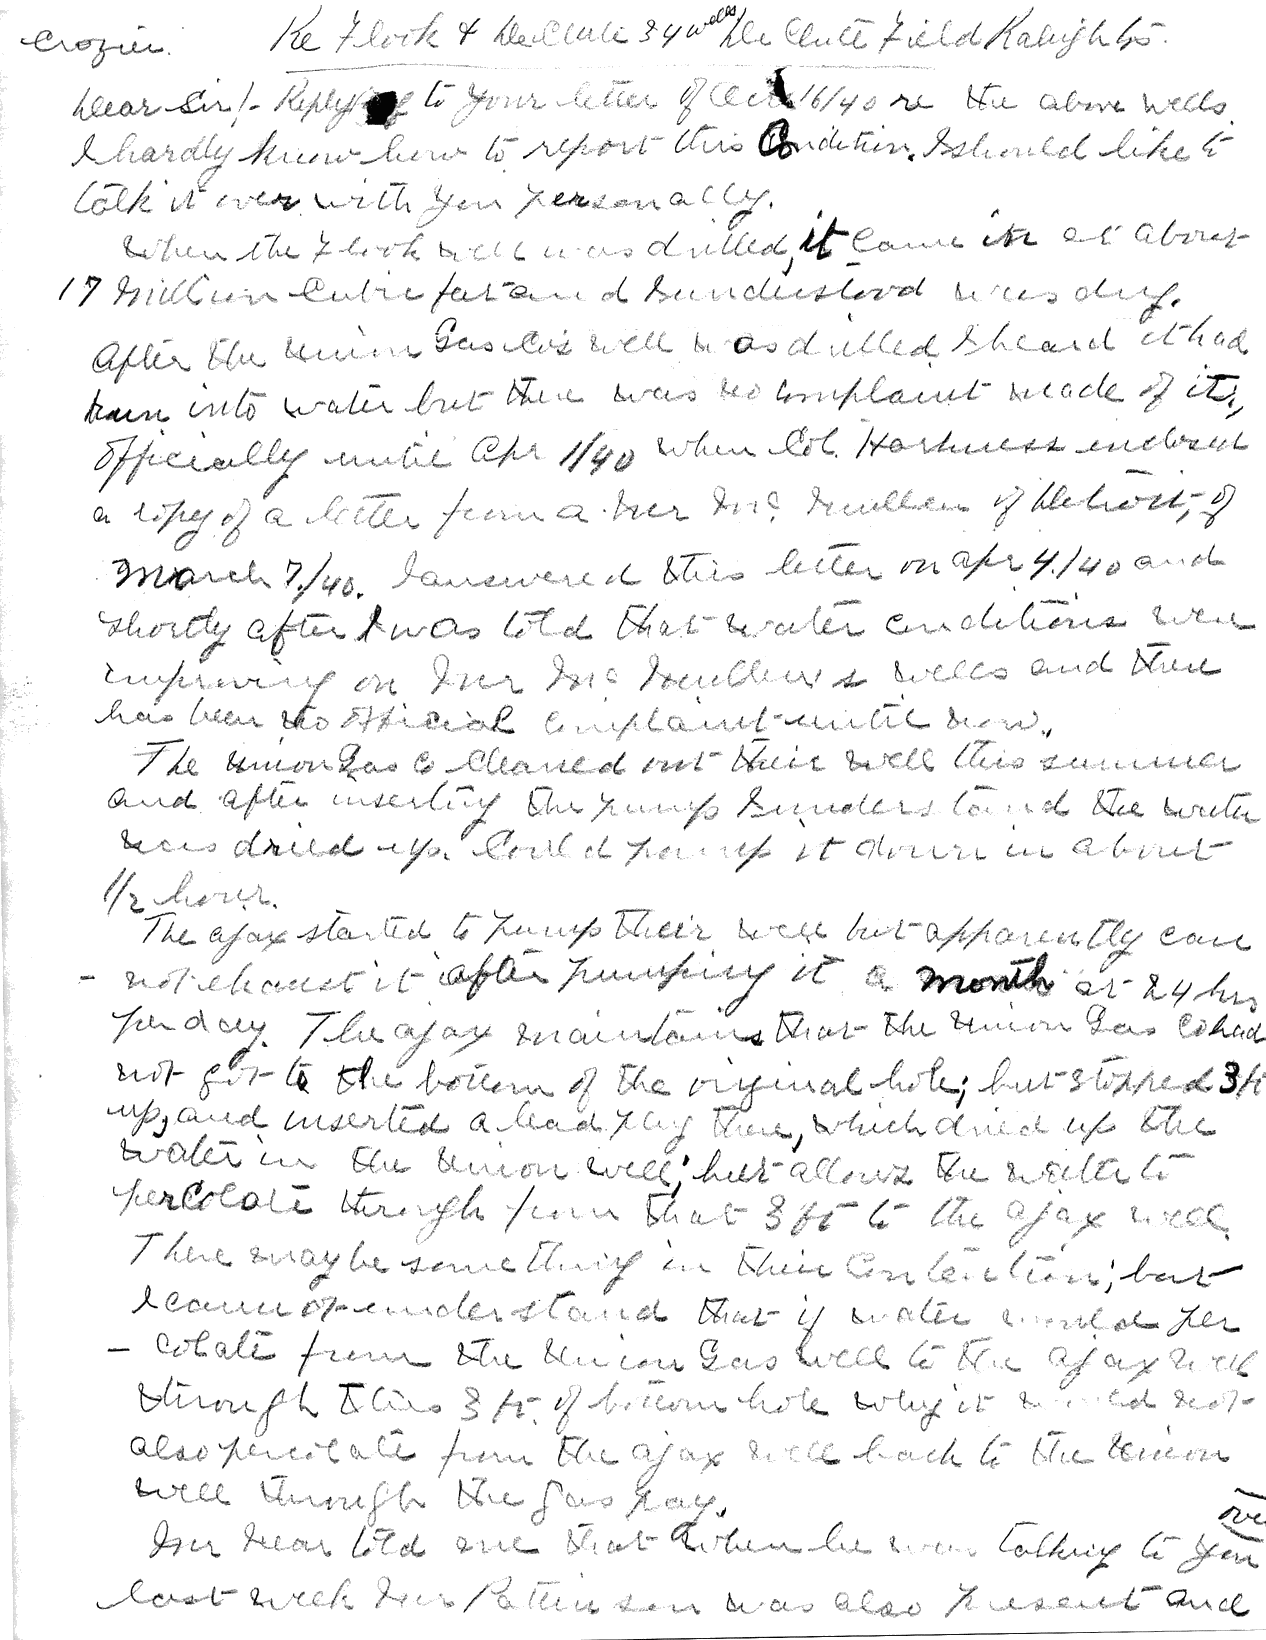 Crozier. Re Flook & DeClute 34 wells DeClute Field Raleigh
Dear Sir/- Replying to your letter of Oct 16/40 re the above wells.
I hardly know how to report this Condition. I should like to
talk it over with you personally.
When the Flook well was drilled, it came in at about
17 Million Cubic feet and I understood was dry.
After the Union Gas Co's well was drilled I heard it had
run into water but there was no complaint made of it,
officially until Apr 1/40 when Col. Harkness enclosed
a copy of a letter from a Mr Mc Mullen of Detroit, of
March 7/40. I answered this letter on Apr 4/40 and
shortly after I was told that water conditions were
improving on Mr Mc Mullen's wells and there
has been no official complaint until now.
The Union Gas Co cleaned out their well this summer
and after inserting the pump I understand the water
was dried up. Could pump it down in about
1/2 hour.
The Ajax started to pump their well but apparently can
- not exhaust it after pumping it a month at 24 hrs
per day. The Ajax maintains that the Union Gas Co had
not got to the bottom of the original hole; but stopped 3 ft
up, and inserted a lead plug there, which dried up the
water in the Union well; but allows the water to
percolate through from that 3 ft to the Ajax well.
There may be something in their Contention; but
I cannot understand that if water would per
- colate from the Union Gas well to the Ajax well
through this 3 ft. of bottom hole why it would not
also percolate from the Ajax well back to the Union
well through the gas pay.
over
Mr told me that when he was talking to you
last week Mr Pattinson was also present and